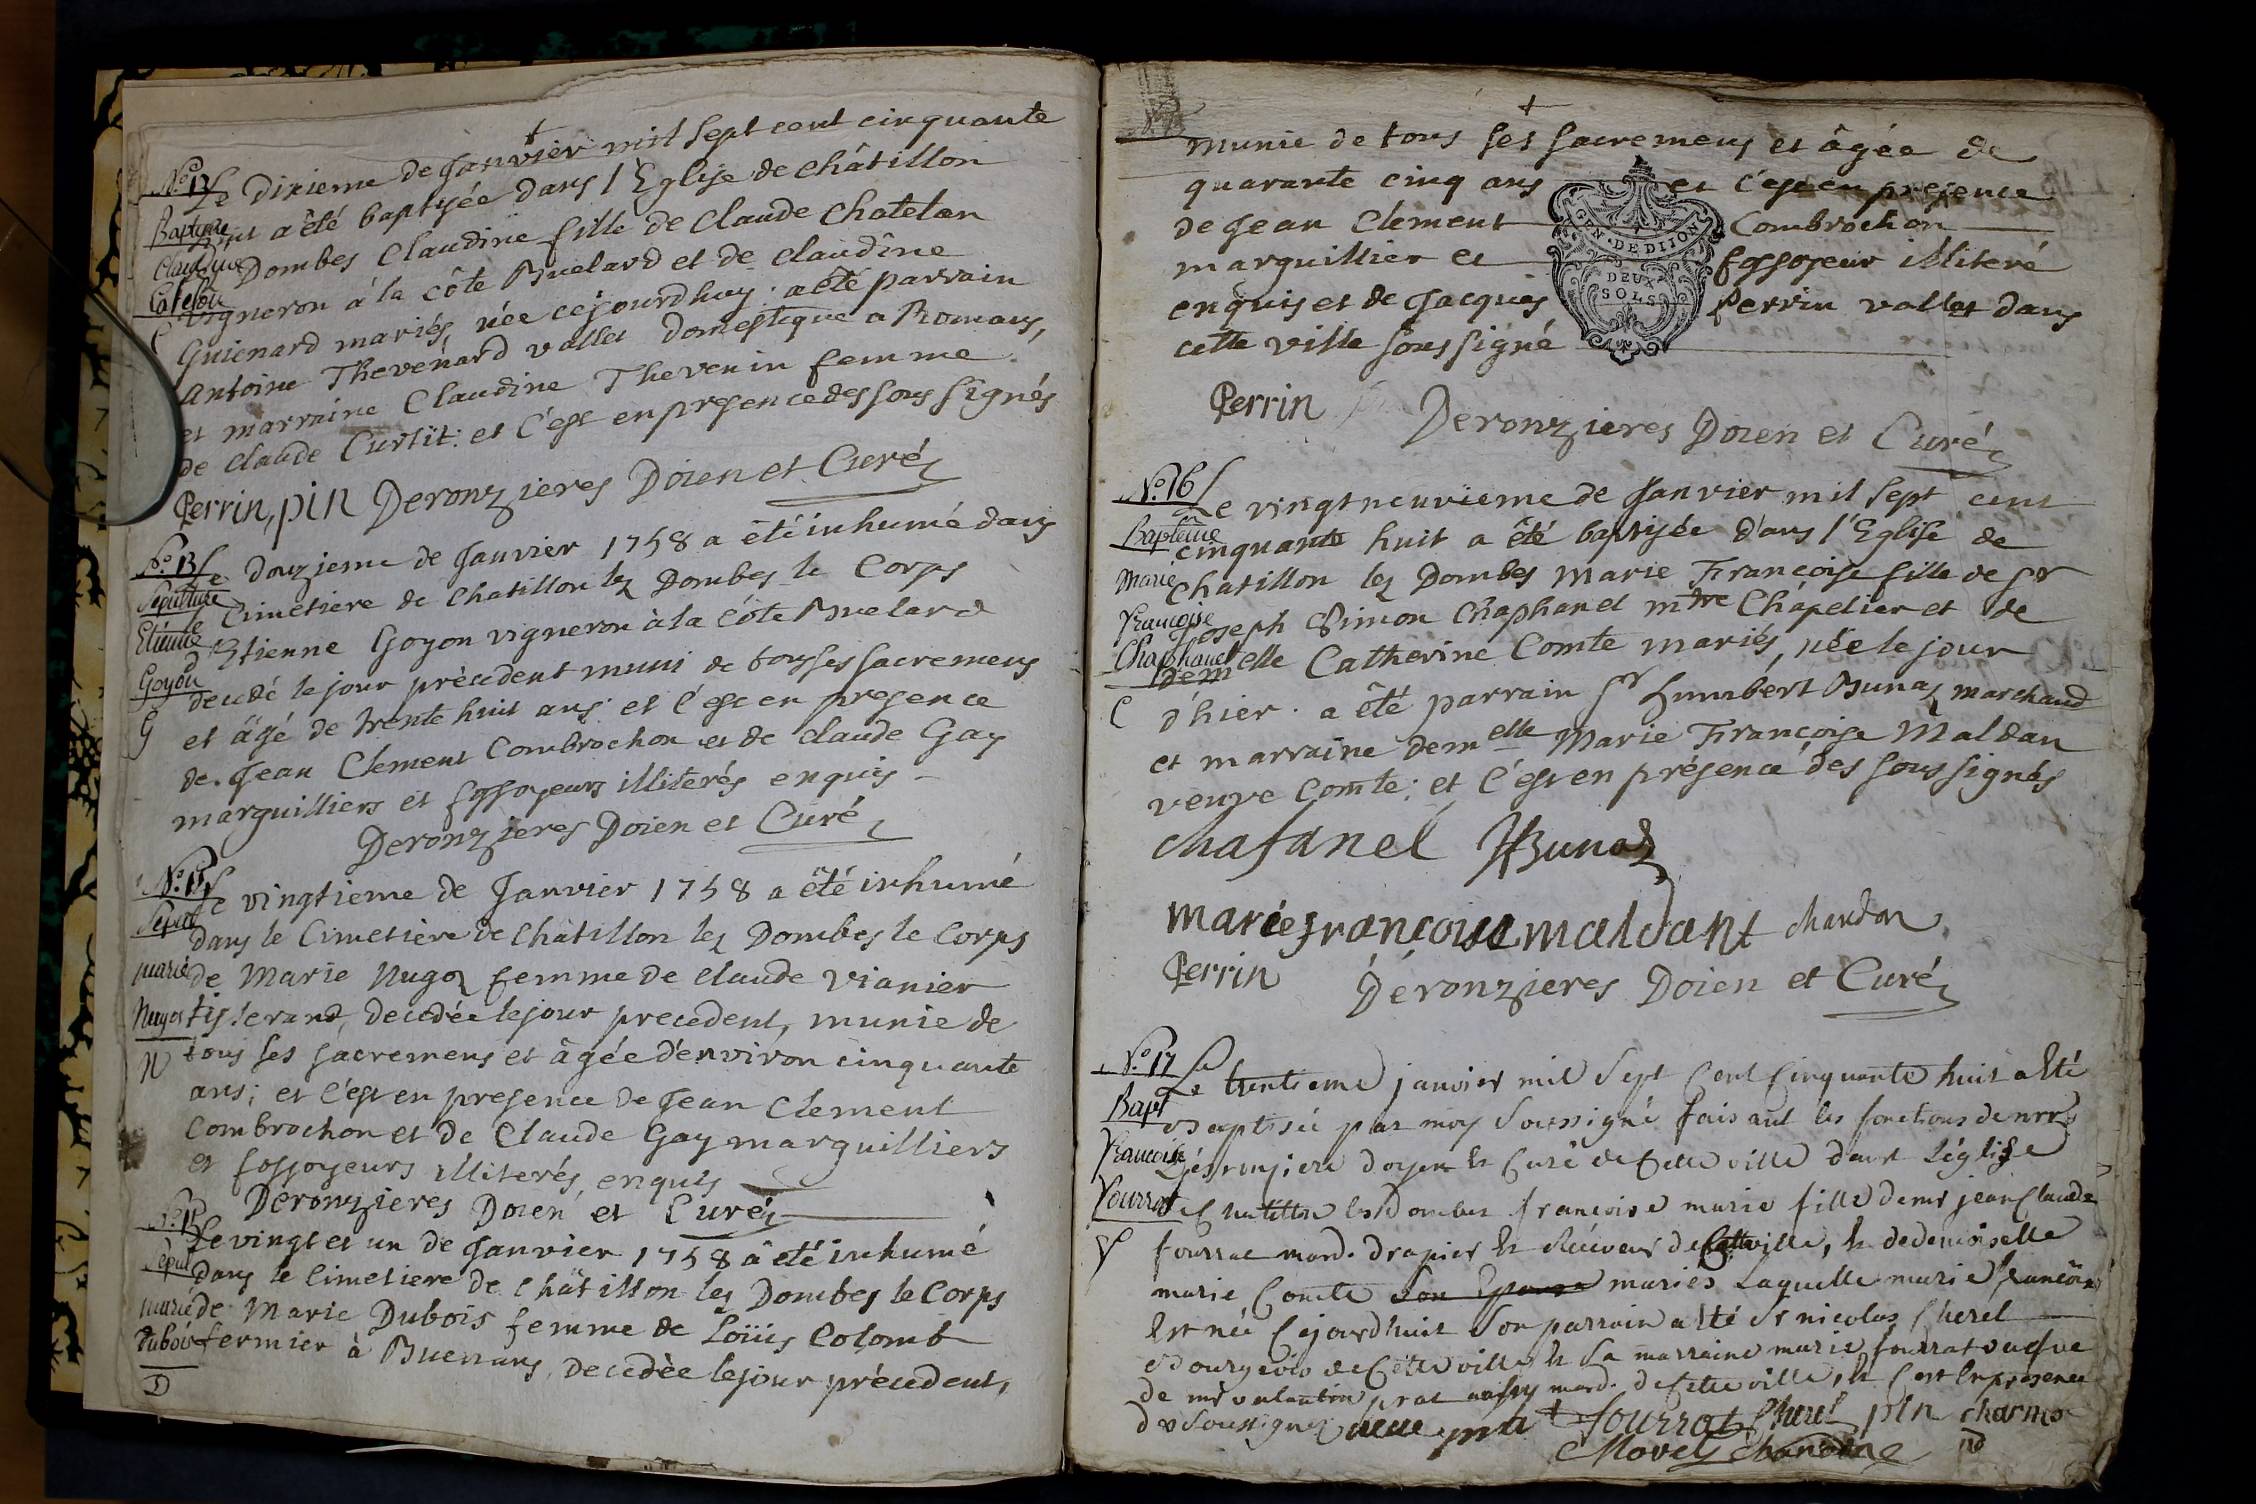 +
No. 12 Le dixieme de Janvier mil sept cent cinquante
Baptême huit a êté baptisée dans l'Eglise de châtillon
Claudine lez Dombes Claudine fille de claude chatelan
Catelan vigneron à la côte Buelard et de claudine
C Guienard mariés, née cejourdhuy: a êté parrain
Antoine Thevenard vallet domestique a Romans,
et marraine Claudine Thevenin femme
de claude Curtit: et c'est en presence des sous signés
Perrin, pin Deronzieres Doien et Curé
No. 13 Le douzieme de Janvier 1758 a êté inhumé dans
Sepulture le Cimetiere de Chatillon lez Dombes le Corps
Etienne d'Etienne Goyon vigneron à la côte Buelard
Goyon decedé le jour précedent muni de tous ses sacremens
G et âgé de trente huit ans: et c'est en presence
de Jean Clement Combrochon et de claude Gay
marguilliers et fossoyeurs illiterés enquis
Deronzieres Doien et Curé
No. 14 Le vingtieme de Janvier 1758 a êté inhumé
Sepul dans le Cimetiere de Châtillon lez Dombes le Corps
marie de Marie Nugoz femme de claude vianier
Nugos tisserand, decedée le jour precedent, munie de
N tous ses sacremens et âgée d'environ cinquante
ans; et c'est en presence de Jean Clement
Combrochon et de Claude Gay marguilliers
et fossoyeurs illiterés, enquis
Deronzieres Doien et Curé
No. 15 Le vingt et un de Janvier 1758 a êté inhumé
Sepul dans le Cimetiere de Châtillon les Dombes le Corps
marie de Marie Dubois femme de Loüis Colomb
Dubois fermier à Buenans, decedée le jour précedent,
D
+
munie de tous ses sacremens et âgée de
quarante cinq ans et c'est en presence
de Jean Clement Combrochon
marguillier et fossoyeur illiteré
enquis et de Jacques Perrin vallet dans
cette ville sous signé
GEN. DE DIJON
DEUX
SOLS
Perrin Deronzieres Doien et Curé
No. 16 Le vingt neuvieme de Janvier mil sept cent
Baptême cinquante huit a êté baptisée dans l'Eglise de
Marie Chatillon lez Dombes Marie Françoise fille de sr
françoise Joseph Simon Chaphanel mtre Chapelier et de
Chaphanel demelle Catherine Comte mariés, née le jour
C d'hier. a êté parrain sr Humbert Bunaz marchand
et marraine demelle Marie Françoise Maldan
veuve Comte: et c'est en présence des sous signés
chafanel HBunaz
marie françoise maldant chardon
Perrin Deronzieres Doien et Curé
No. 17 Le trentieme janvier mil sept Cent Cinquante huit a Eté
Bapt baptisée par moy soussigné faisant les fonctions de mr
francoise Desronziere doyen et Curé de Cette ville dans l'église
fourrat de Chatillon les Dombes francoise marie fille de mr jean Claude
F fourrat mard. drapier et Réceveur de Cette ville, et de demoiselle
marie Comte son Epouse mariés laquelle marie françoise
Est née Cejourdhuit son parrain a Eté sr nicolas Cherel
Bourgeois de Cette ville et sa marraine marie fourrat veufve
de mr valantin prat mard. de Cette ville, et C'est En presence
des soussignez fourrat Cherel pin charme
Movel chanoine